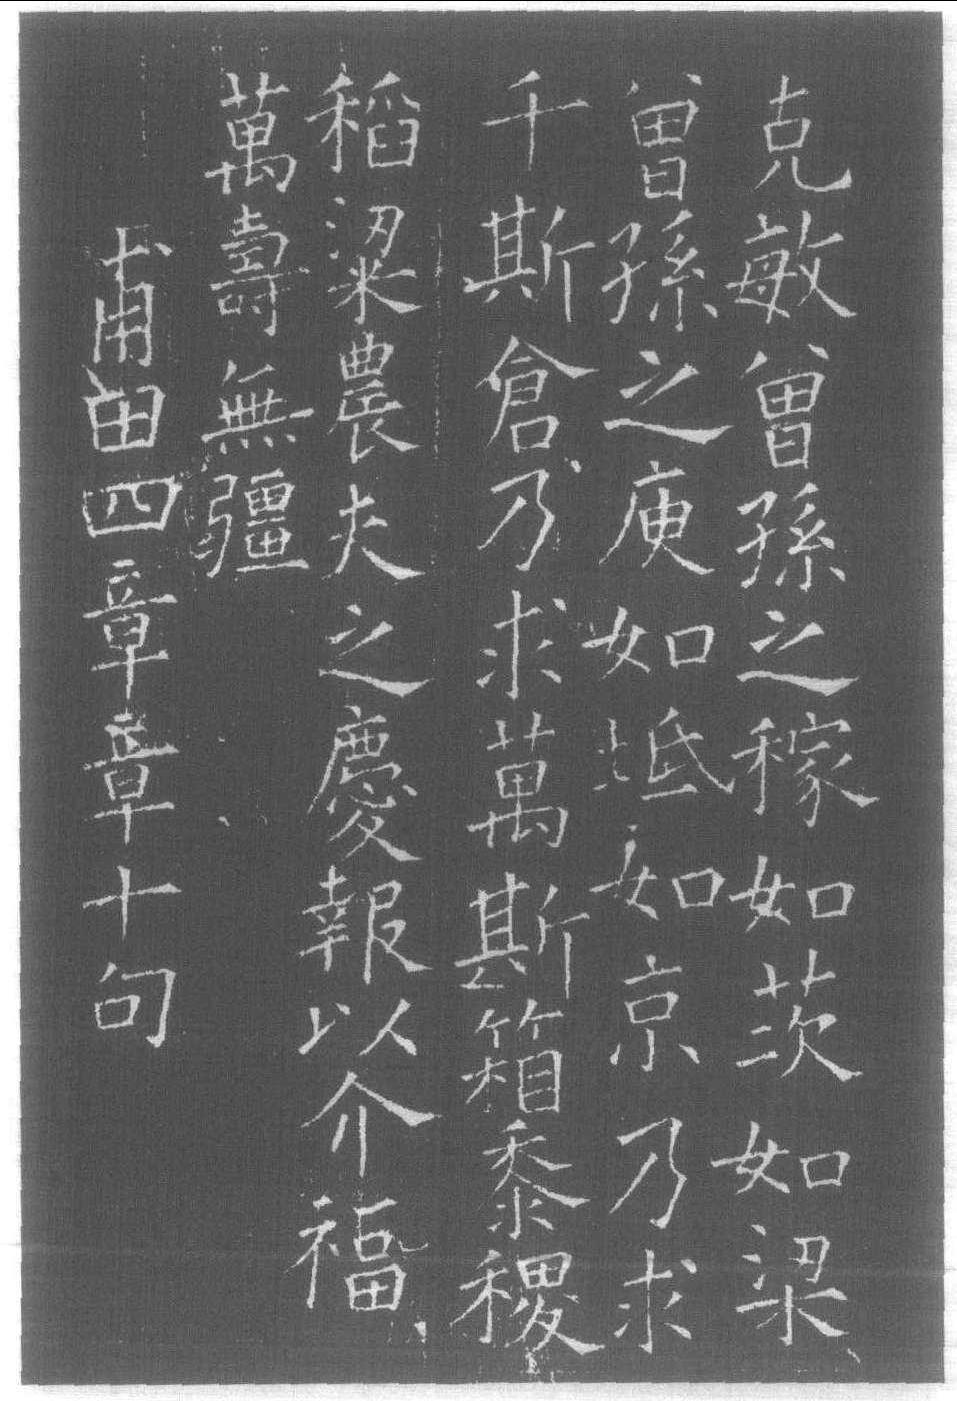 克敏曾孫之稼如茨如梁
曾孫之庾如坻如京乃求
千斯倉乃求萬斯箱黍稷
稻粱農夫之慶報以介福
萬壽無疆
甫田四章章十句